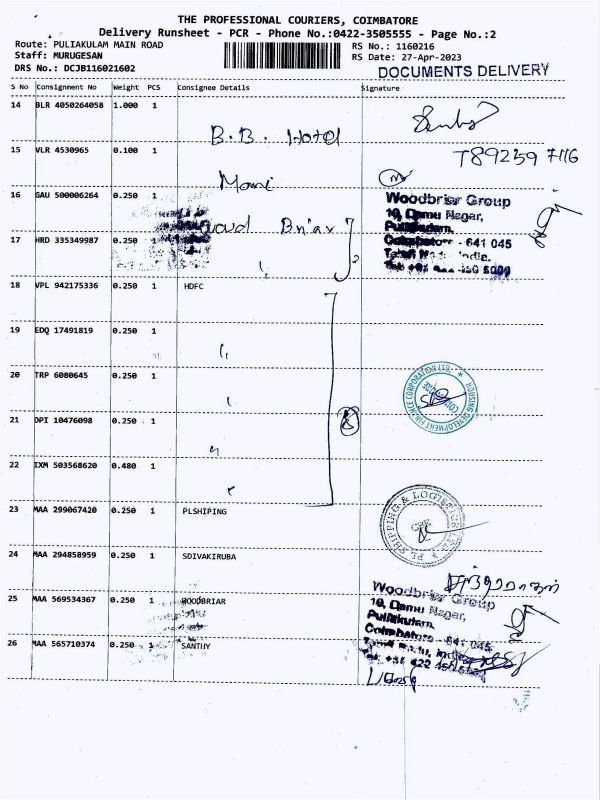 THE PROFESSIONAL COURIERS, COIMBATORE
Delivery Runsheet - PCR - Phone No.:0422-3505555 - Page No.:2
Route: PULIAKULAM MAIN ROAD RS No.: 1160216
Staff: MURUGESAN RS Date: 27-Apr-2023
DRS No.: DCJB116021602 DOCUMENTS DELIVERY
S No Consignment No Weight PCS Consignee Details Signature
14 BLR 4050264058 1.000 1
B.B. Hotel
15 VLR 4530965 0.100 1
Mani
16 GAU 500006264 0.250 1
Woodbriar Group
10, Damu Nagar,
Puliakulam,
17 HRD 335349987 0.250 1
Coimbatore - 641 045
18 VPL 942175336 0.250 1 HDFC
19 EDQ 17491819 0.250 1
20 TRP 6080645 0.250 1
HOUSING DEVELOPMENT FINANCE CORPORATION LTD.
21 DPI 10476098 0.250 1
22 IXM 503568620 0.480 1
23 MAA 299067420 0.250 1 PLSHIPING
PL SHIPPING & LOGISTICS
24 MAA 294858959 0.250 1 SDIVAKIRUBA
25 MAA 569534367 0.250 1 WOODBRIAR
Woodbriar Group
10, Damu Nagar,
Puliakulam,
Coimbatore - 641 045
26 MAA 565710374 0.250 1 SANTHY